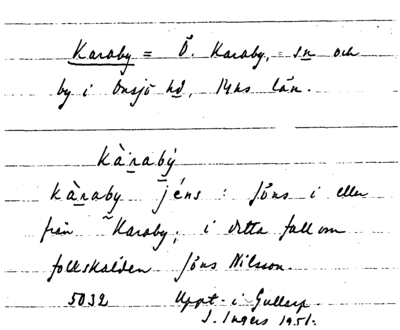 Karaby = Ö. Karaby, sn och
by i Onsjö hd, Mhs län.
kàraby̍
kàraby jéns : Jöns i eller
från Karaby; i detta fall om
folkskalden Jöns Nilsson.
5032 Uppt. i Gullarp.
J. Ingers 1951.